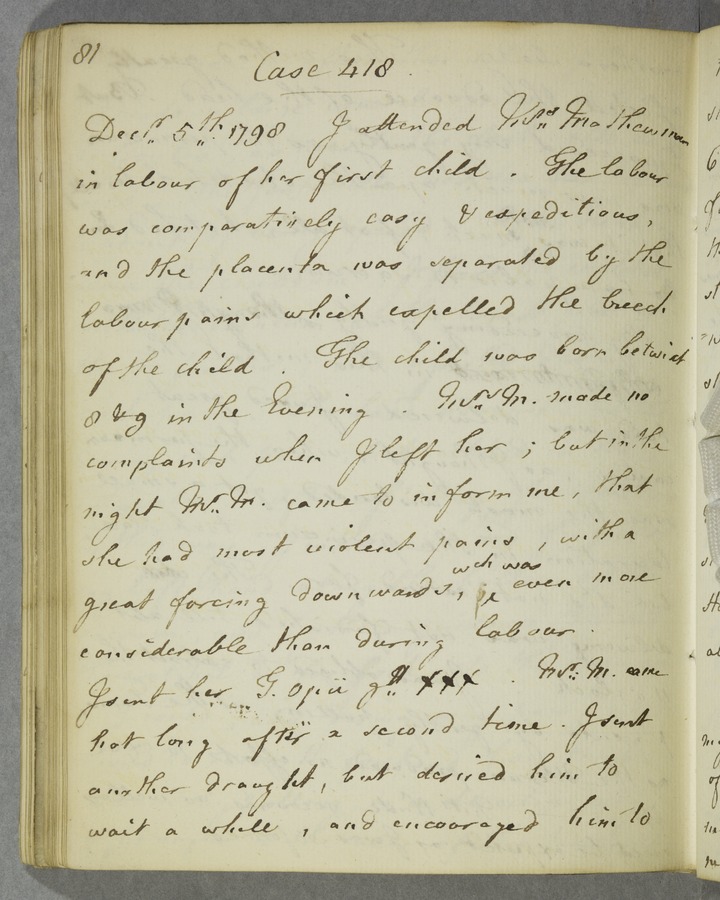 81
Case 418.
Decr. 5th. 1798 I attended Mrs. Mathewman
in labour of her first child. The labour
was comparatively easy & expeditious,
and the placenta was separated by the
labour pains which expelled the breech
of the child. The child was born betwixt
8 & 9 in the Evening. Mrs. M. made no
complaints when I left her; but in the
night Mr. M. came to inform me, that
she had most violent pains, with a
wch was
great forcing downwards, even more
considerable than during labour.
I sent her G. opii gtt XXX. Mr. M. came
not long after a second time. I sent
another draught, but desired him to
wait a while, and encouraged him to